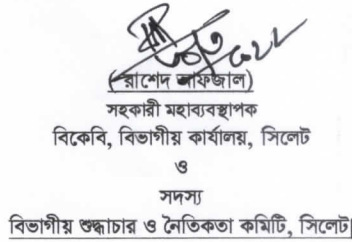 (রাশেদ আফজাল)
সহকারী মহাব্যবস্থাপক
বিকেবি, বিভাগীয় কার্যালয়, সিলেট
ও
সদস্য
বিভাগীয় শুদ্ধাচার ও নৈতিকতা কমিটি, সিলেট